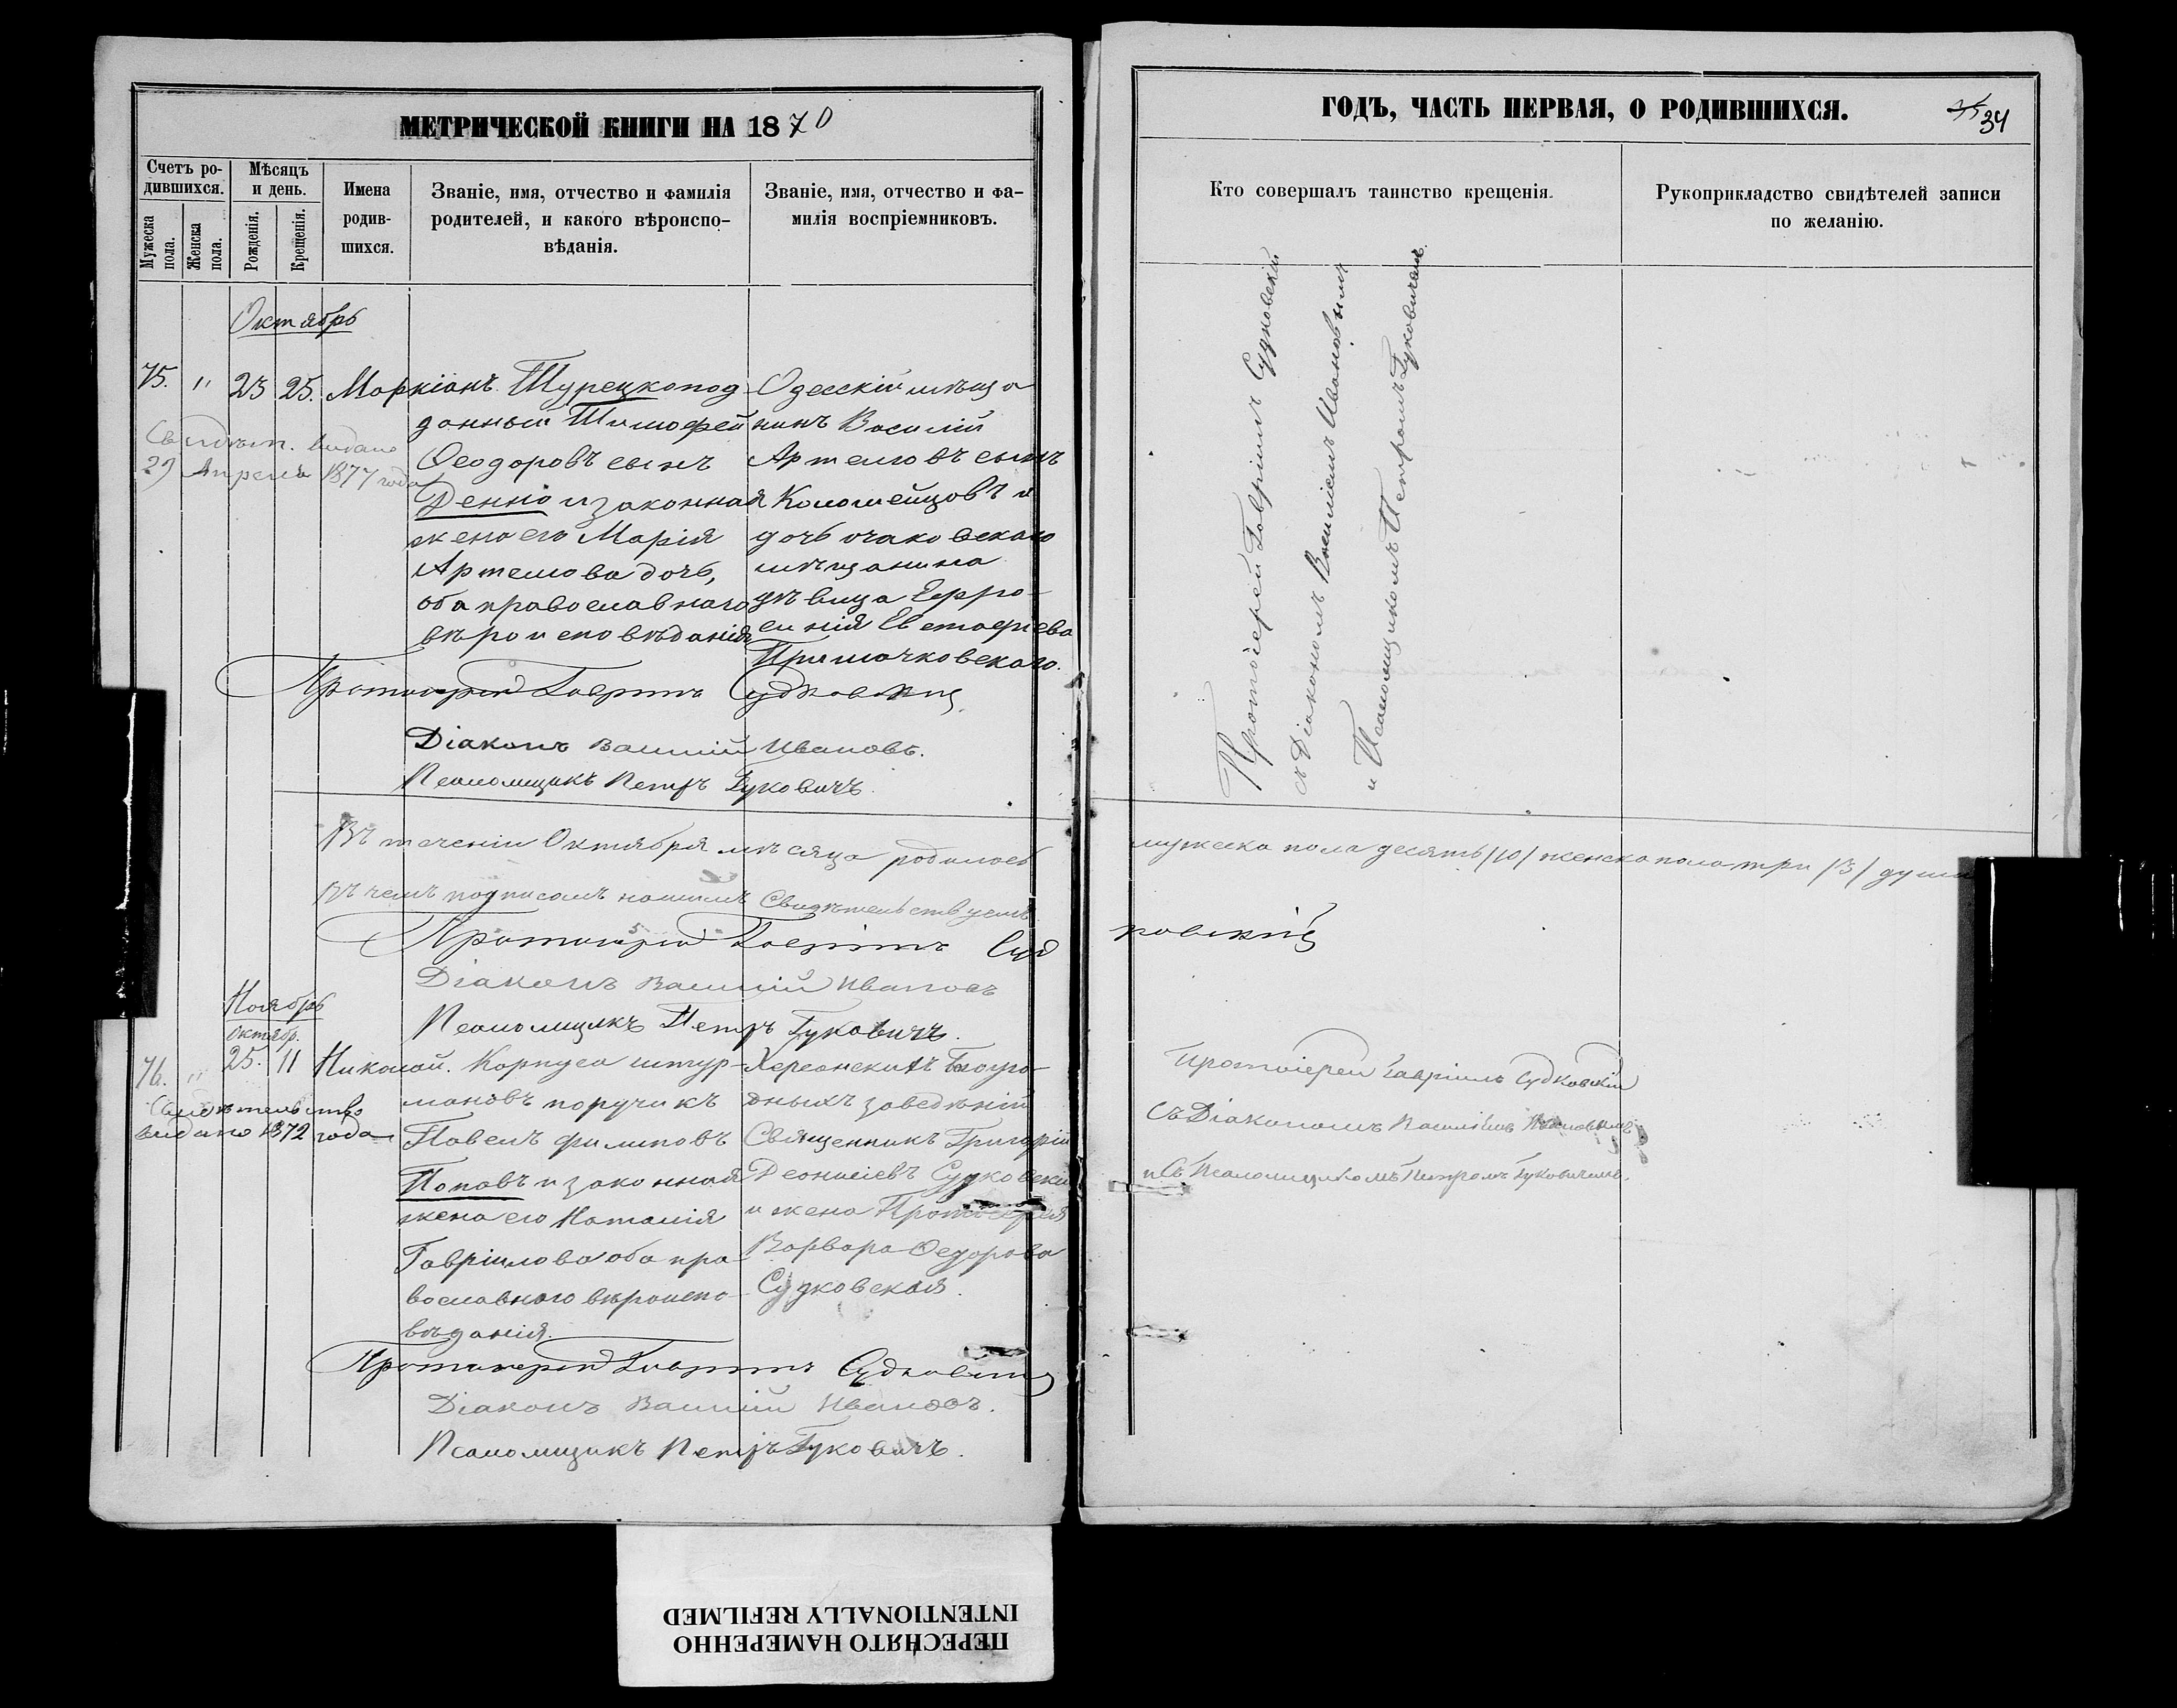 МЕТРИЧЕСКОЙ КНИГИ НА 1870
Счетъ ро-
дившихся.
Мужеска
пола.
Женска
пола.
Мѣсяцъ
и день.
Рожденія.
Крещенія.
Имена
родив-
шихся.
Званіе, имя, отчество и фамилія
родителей, и какого вѣроиспо-
вѣданія.
Званіе, имя, отчество и фа-
милія воспріемниковъ.
Октябрь
75. " 23 25. Маркіанъ
Свидѣт. выдано
29 Апреля 1877 года
Турецкопод-
данный Тимофей
Ѳеодоровъ сынъ
Денно и законная
жена его Марія
Артемова дочь,
оба православнаго
вѣроисповѣданія
Одесскій мѣща
нинъ Василій
Артемовъ сынъ
Коломейцовъ и
дочь очаковскаго
мѣщанина
дѣвица Ефро-
синія Евстафіева
Примочковскаго.
Протоіерей Гавріилъ Судковскій
Діаконъ Василій Ивановъ.
Псаломщикъ Петръ Гуковичъ.
Въ теченіи Октября мѣсяца родилось
въ чемъ подписомъ нашимъ Свидѣтельствуемъ
Протоіерей Гавріилъ Суд
Діаконъ Василій Ивановъ
Псаломщикъ Петръ Гуковичъ.
Ноябрь
Октябр.
76. " 25. 11 Николай.
Свидѣтельство
выдано 1872 года
Корпуса штур-
мановъ поручикъ
Павелъ Филиповъ
Поповъ и законная
жена его Наталія
Гавріилова оба пра-
вославнаго вѣроиспо-
вѣданія.
Херсонскихъ Богоу-
дныхъ заведѣній
Священникъ Григорій
Деонисіевъ Судковскій
и жена Протоіерея
Варвара Ѳедорова
Судковская.
Протоіерей Гавріилъ Судковскій
Діаконъ Василій Ивановъ.
Псаломщикъ Петръ Гуковичъ.
ГОДЪ, ЧАСТЬ ПЕРВАЯ, О РОДИВШИХСЯ.
34
Кто совершалъ таинство крещенія.
Рукоприкладство свидѣтелей записи
по желанію.
Протоіерей Гавріилъ Судковскій
съ Діакономъ Василіемъ Ивановымъ
и Псаломщикомъ Петромъ Гуковичемъ
мужеска пола десять /10/ женска пола три /3/ души
ковскій
Протоіерей Гавріилъ Судковскій
Съ Діакономъ Василіемъ Ивановымъ
и Съ Псаломщикомъ Петромъ Гуковичемъ.
ПЕРЕСНЯТО НАМЕРЕННО
INTENTIONALLY REFILMED